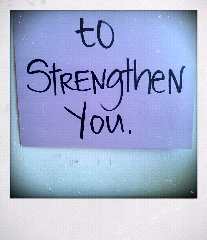 to
STRENgtheN
You.